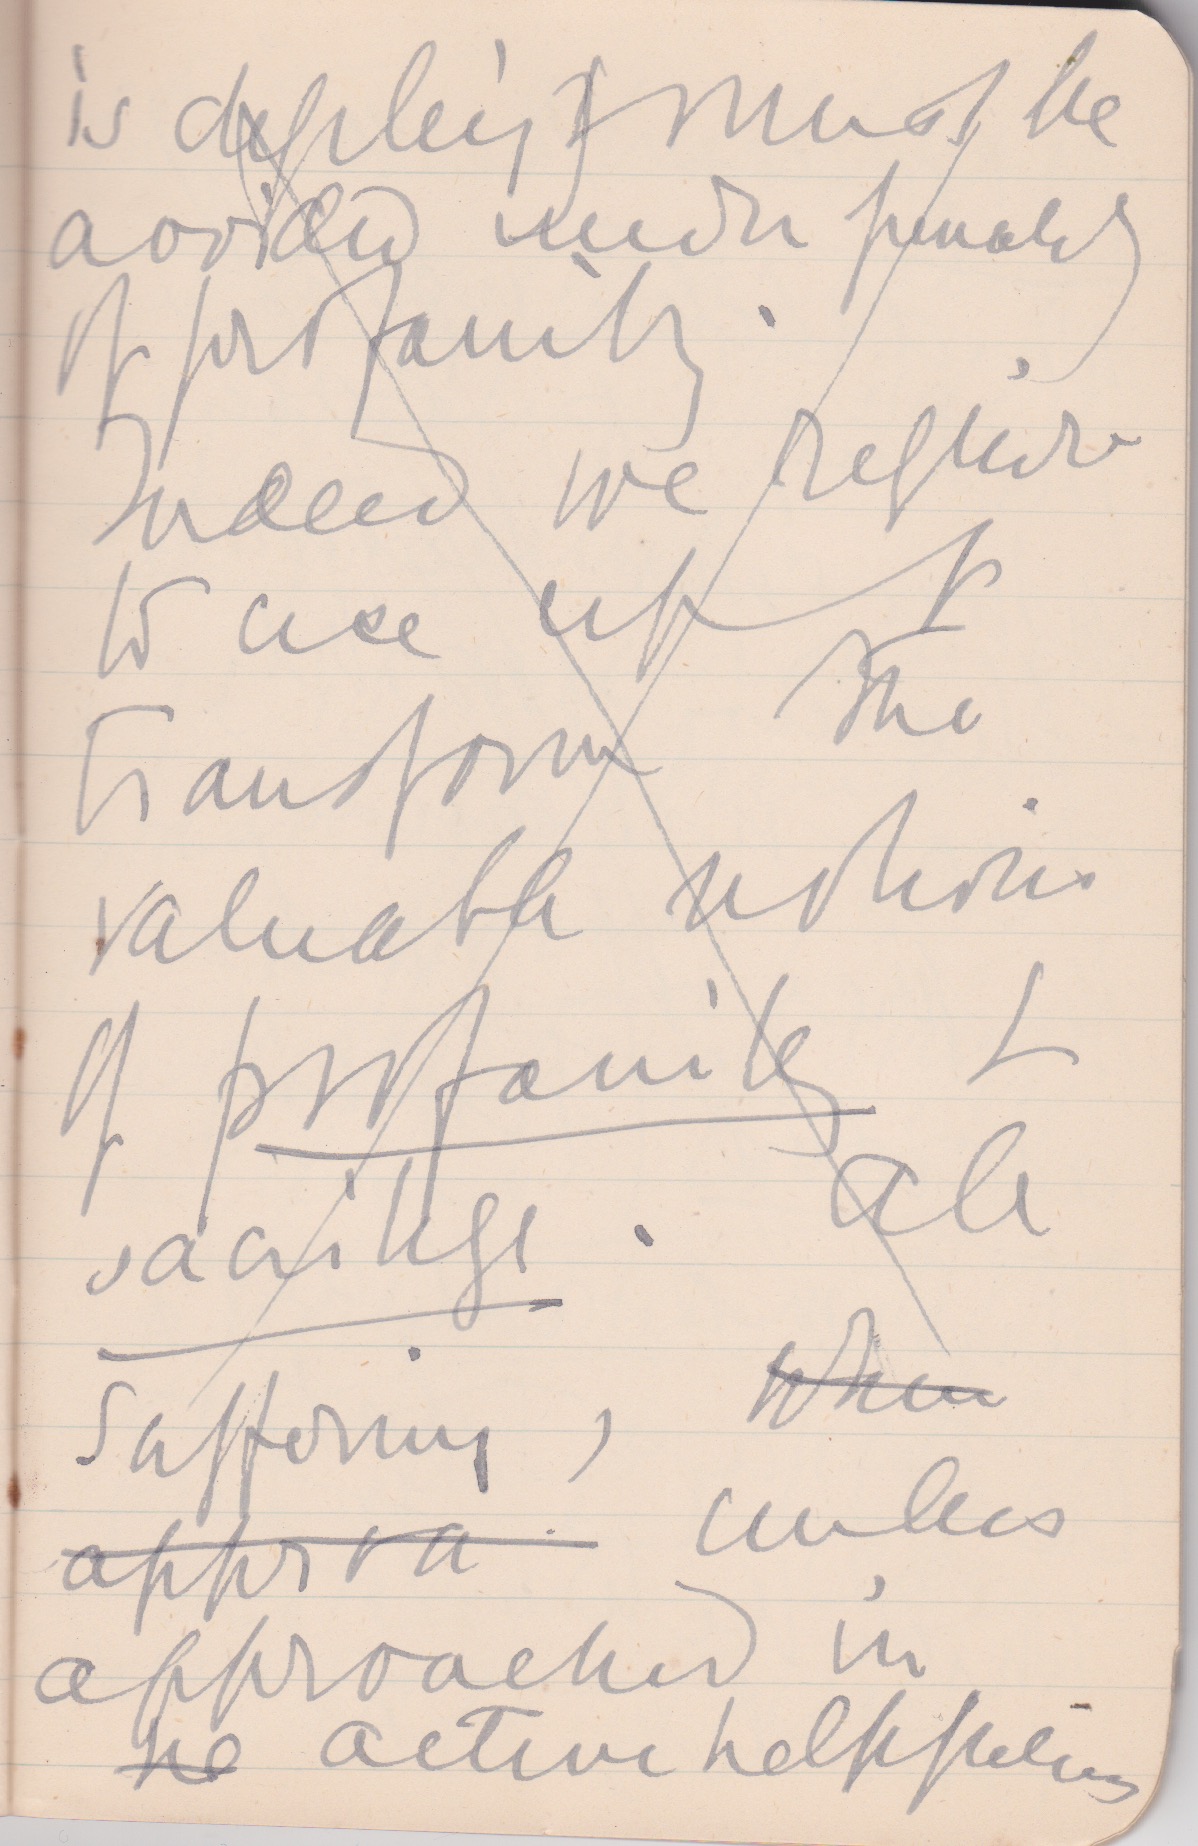 is deplorj & must be
avoided under penalty
of profanity.
Indeed we require
to use up &
transform the
valuable notions
of profanity &
sacrilege. All
suffering, when
approa unless
approached in
he active helpfulness